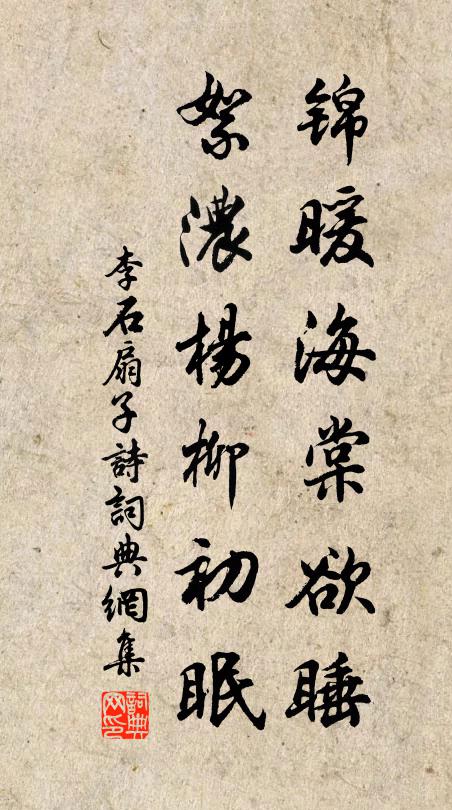 锦暖海棠欲睡
絮濃楊柳初眠
李石扇子詩詞典網集
詞典网印